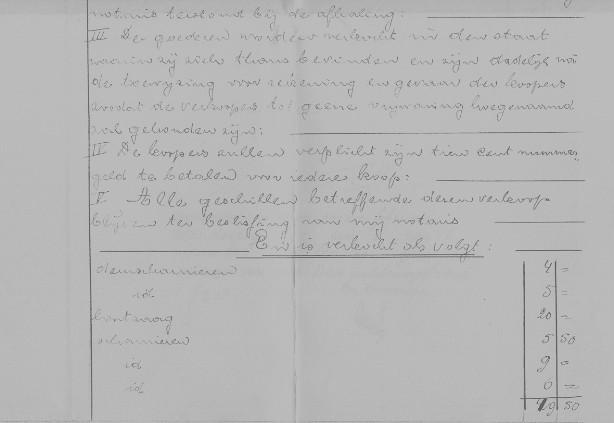 notaris terstond bij de afhaling:
III De goederen worden verkocht in den staat
waarin zij zich thans bevinden en zijn dadelijk na
de toewijzing voor rekening en gevaar der koopers
zoodat de verkoopers tot geene vrijwaring hoegenaamd
zal gehouden zijn;
IV De koopers zullen verplicht zijn tien cent nummer-
geld te betalen voor iedere koop:
V Alle geschillen betreffende dezen verkoop
blijven ter beslissing van mij notaris
En is verkocht als volgt:
deurscharnieren 4 =
id 5 =
houtzaag 20 =
scharnieren 5 50
id 9 =
id 6 =
49 50